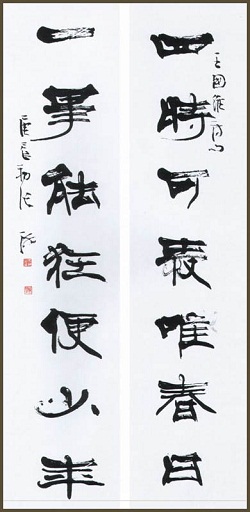 王國維詩句
四時可愛唯春日
一事能狂便少年
庚辰